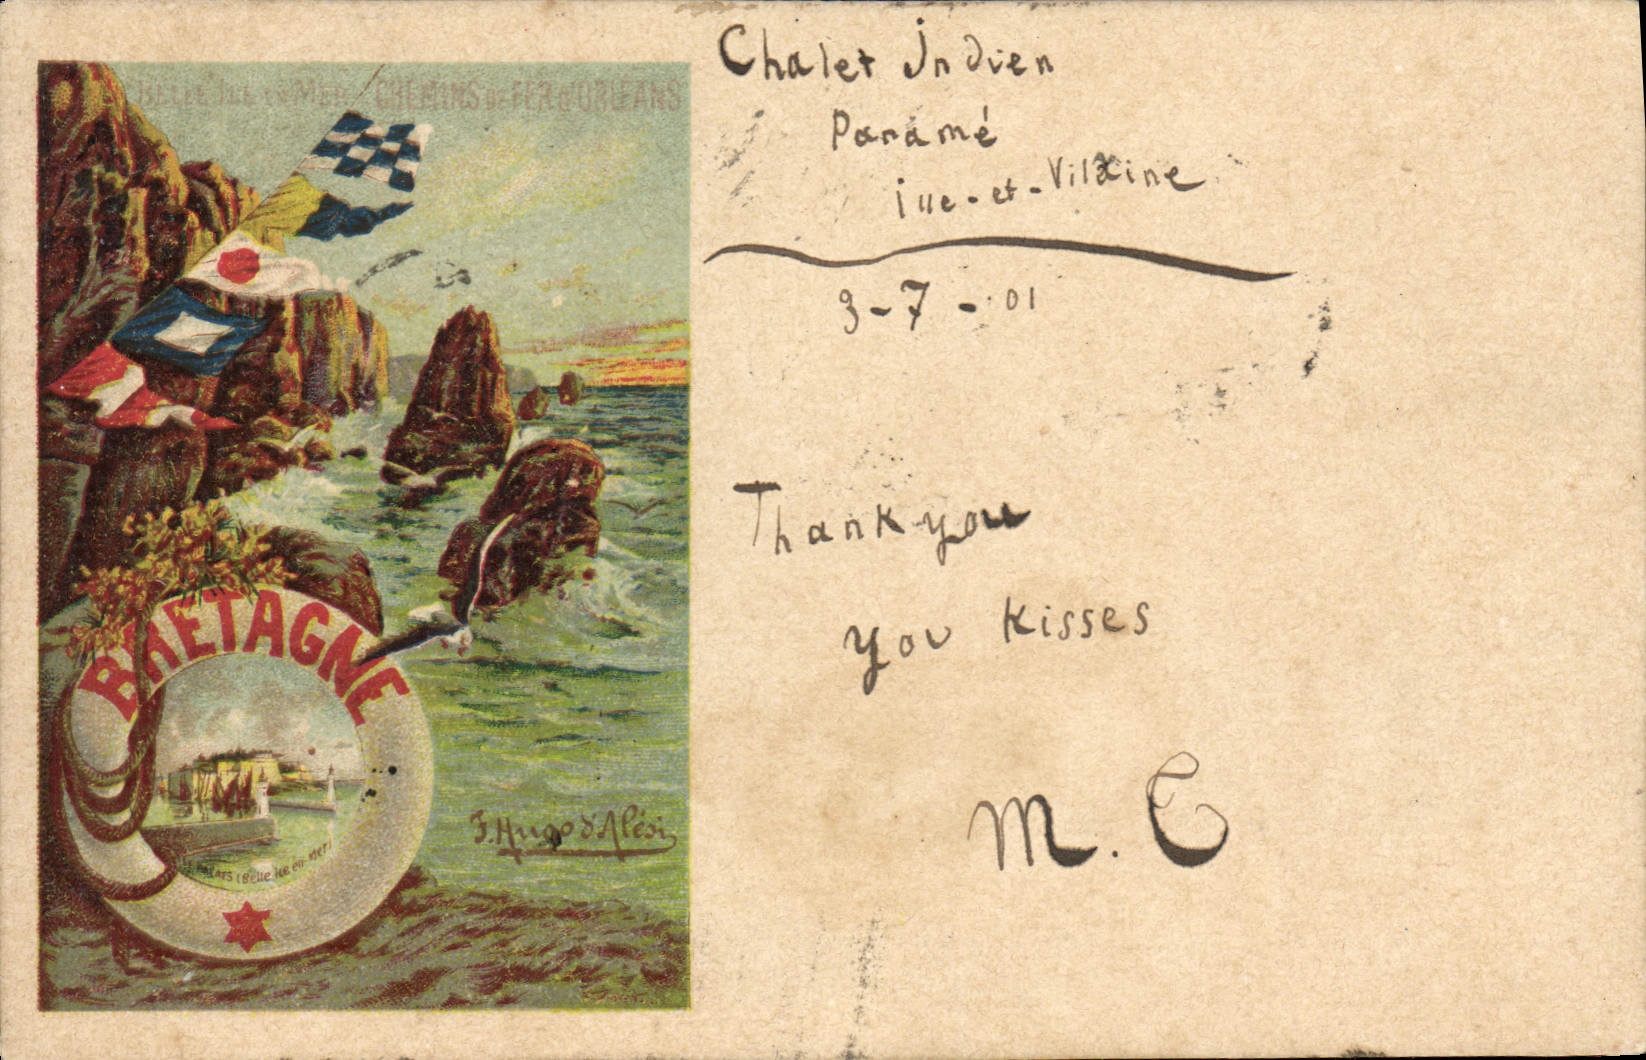 BELLE ILE EN MER. CHEMINS DE FER D'ORLEANS
BRETAGNE
F. Hugo d'Alési
(Belle Ile en Mer)
Chalet Indien
Paramé
Ille-et-Vilaine
3-7-01
Thank you
you Kisses
M. C